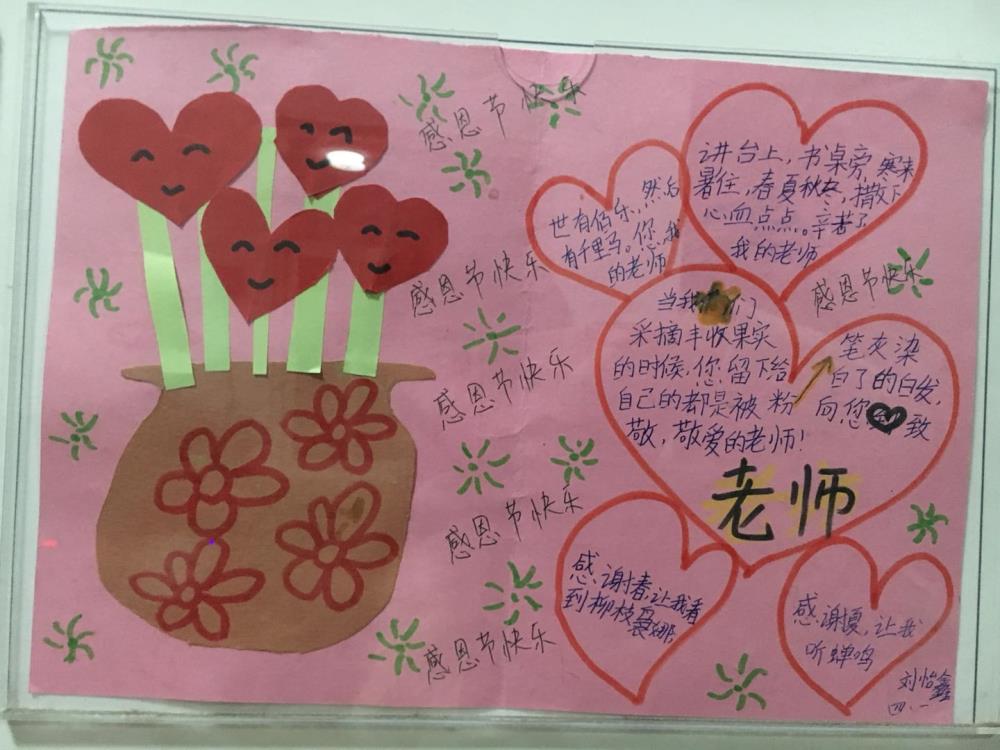 感恩节快乐
感恩节快乐
感恩节快乐
感恩节快乐
感恩节快乐
感恩节快乐
世有伯乐,然后
有千里马。您,我
的老师
讲台上,书桌旁,寒来
暑往,春夏秋冬,撒下
心血点点。辛苦了
我的老师
当我们
采摘丰收果实
的时候,您留下给
自己的都是被粉
笔灰染
白了的白发,
向您致
敬,敬爱的老师!
老师
感谢春,让我看
到柳枝袅娜
感谢夏,让我
听蝉鸣
刘怡鑫
四、一